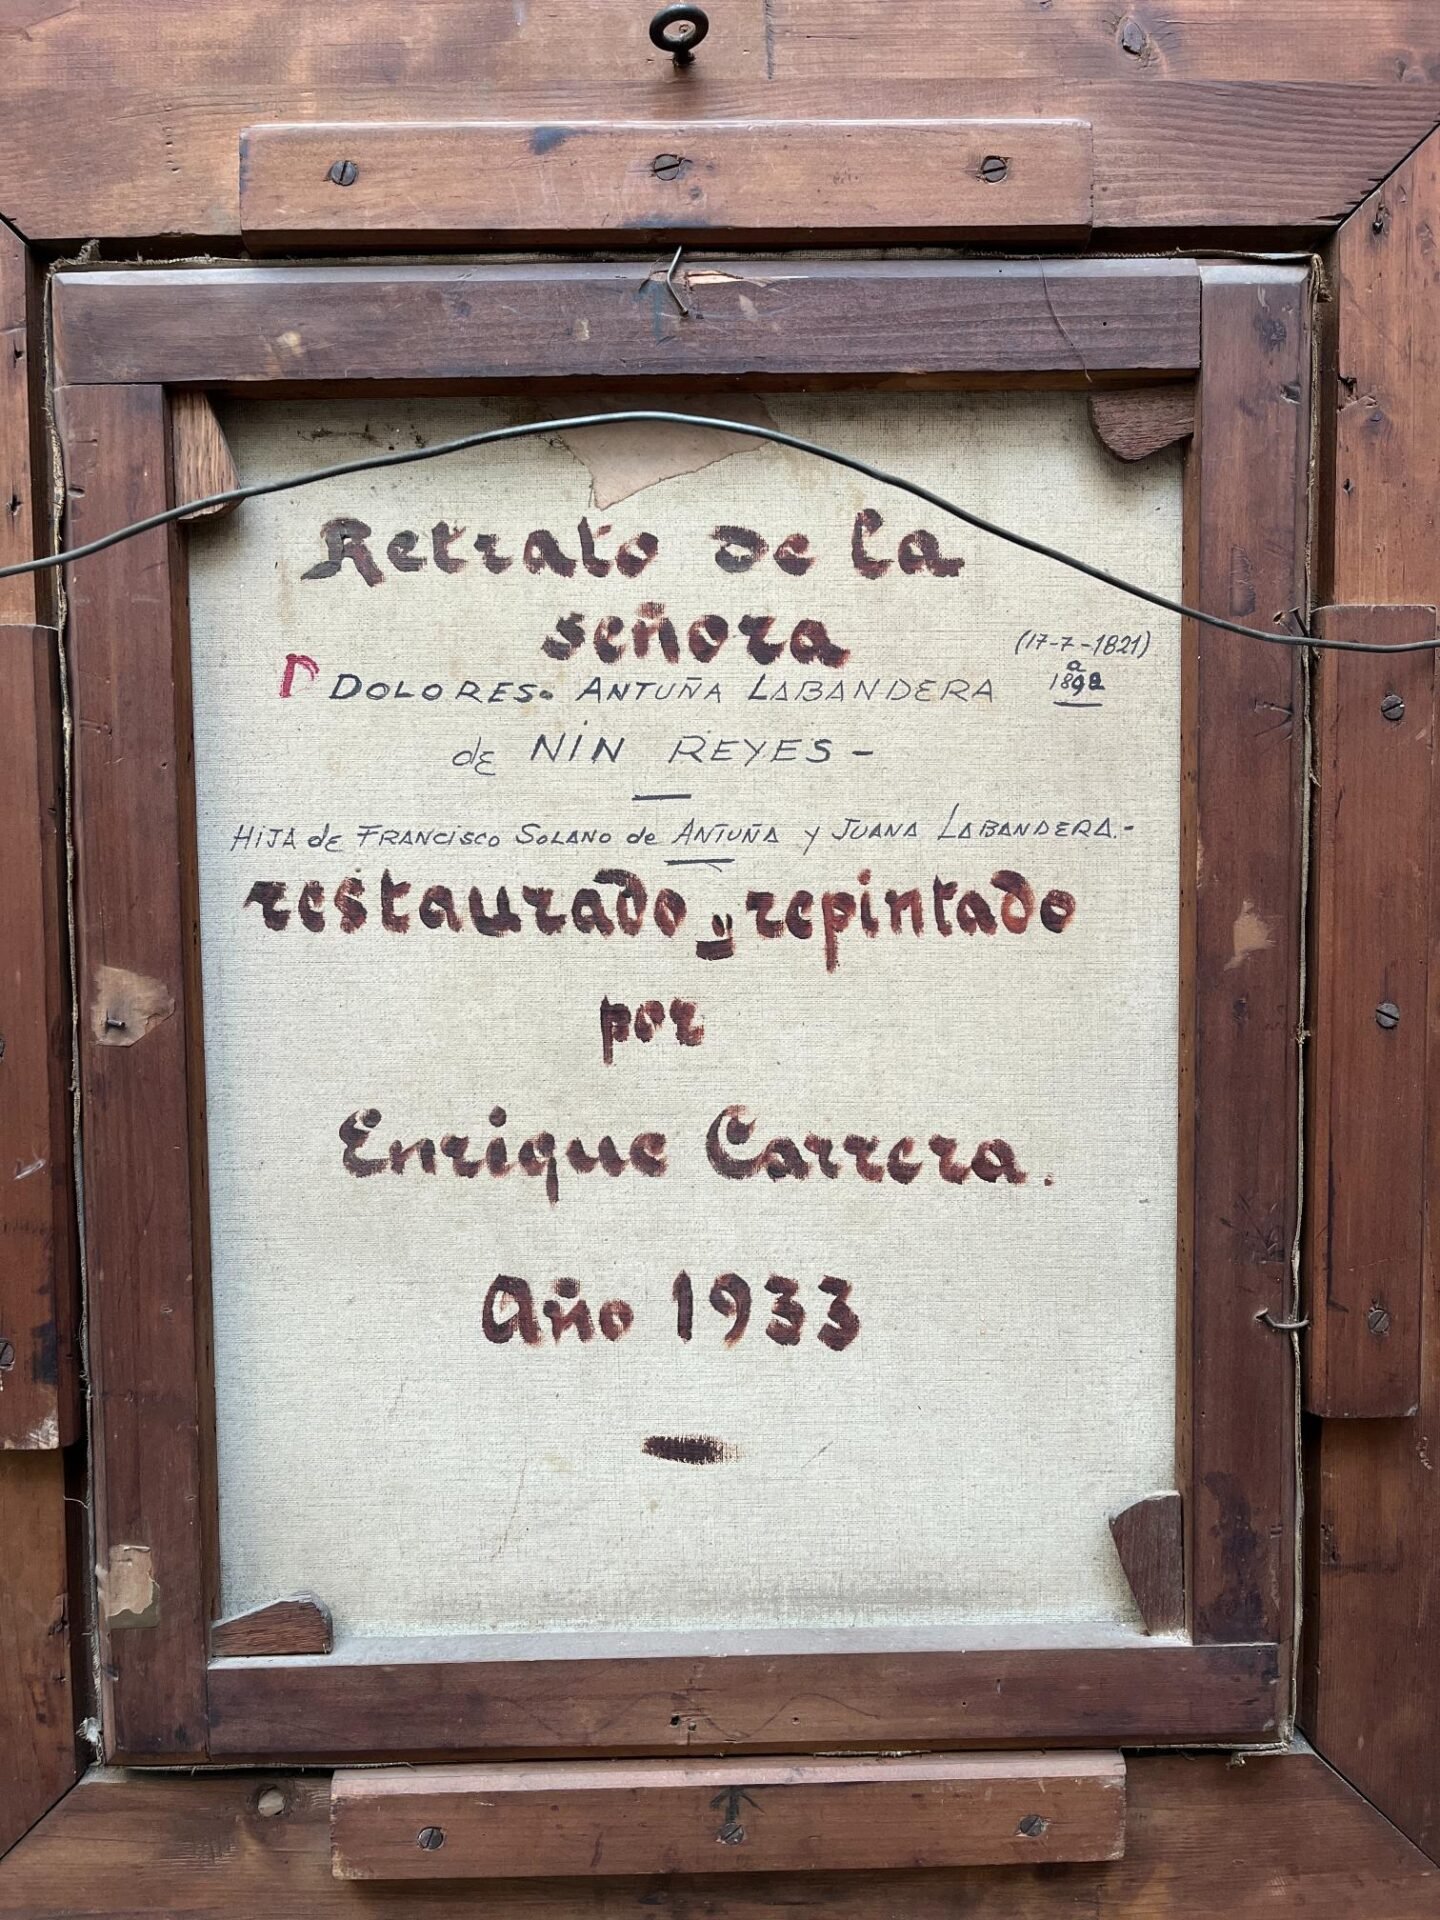 Retrato de la
señora
DOLORES. ANTUÑA LABANDERA
(17-7-1821)
a
1892
de NIN REYES -
HIJA de FRANCISCO SOLANO de ANTUÑA y JUANA LABANDERA.-
restaurado y repintado
por
Enrique Carrera.
Año 1933